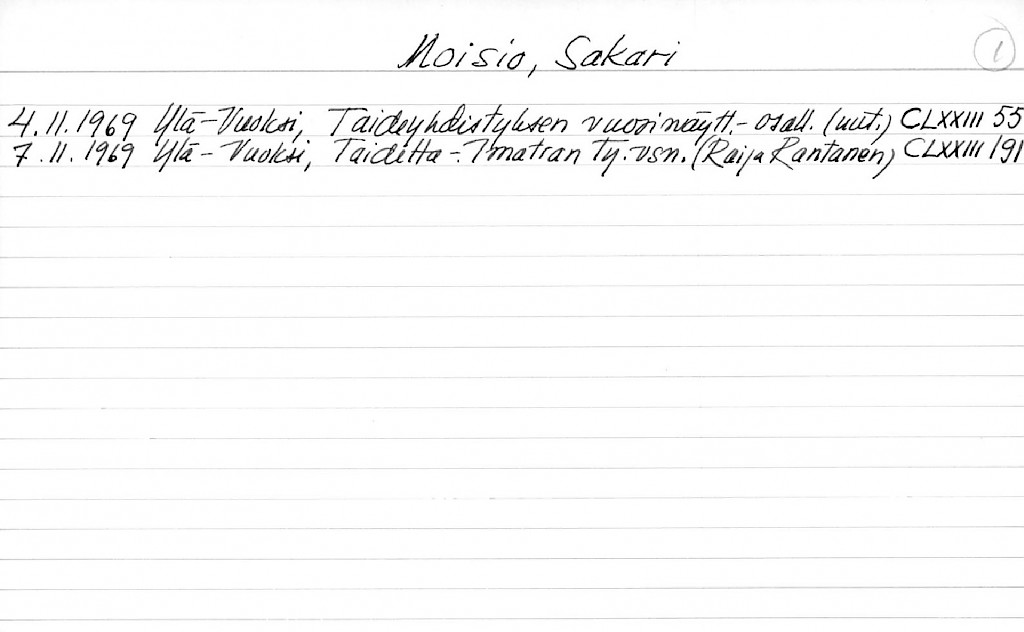 Moisio, Sakari
1
4.11.1969 Ylä-Vuoksi, Taideyhdistyksen vuosinäytt.- osall. (uut.) CLXXIII 55
7.11.1969 Ylä-Vuoksi, Taidetta-Imatran Ty:vsn. (Raija Rantanen) CLXXIII 191